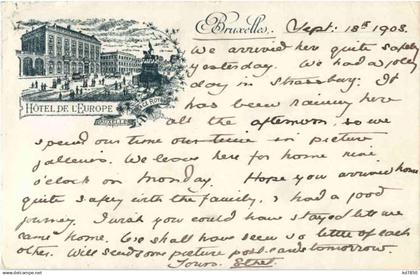 Bruxelles, Sept: 18th 1903.
We arrived here quite safely
yesterday. We had a jolly
day in Strassburg. It
HÔTEL DE L'EUROPE
PLACE ROYALE
BRUXELLES
has been raining here
all the afternoon, so we
spend our time in picture
galleries. We leave here for home nine
o'clock on Monday. Hope you arrived home
quite safely with the family, & had a good
journey. I wish you could have stayed till we
came home. We shall have seen so little of each
other. Will send some picture post-cards tomorrow.
Yours. Ethel.